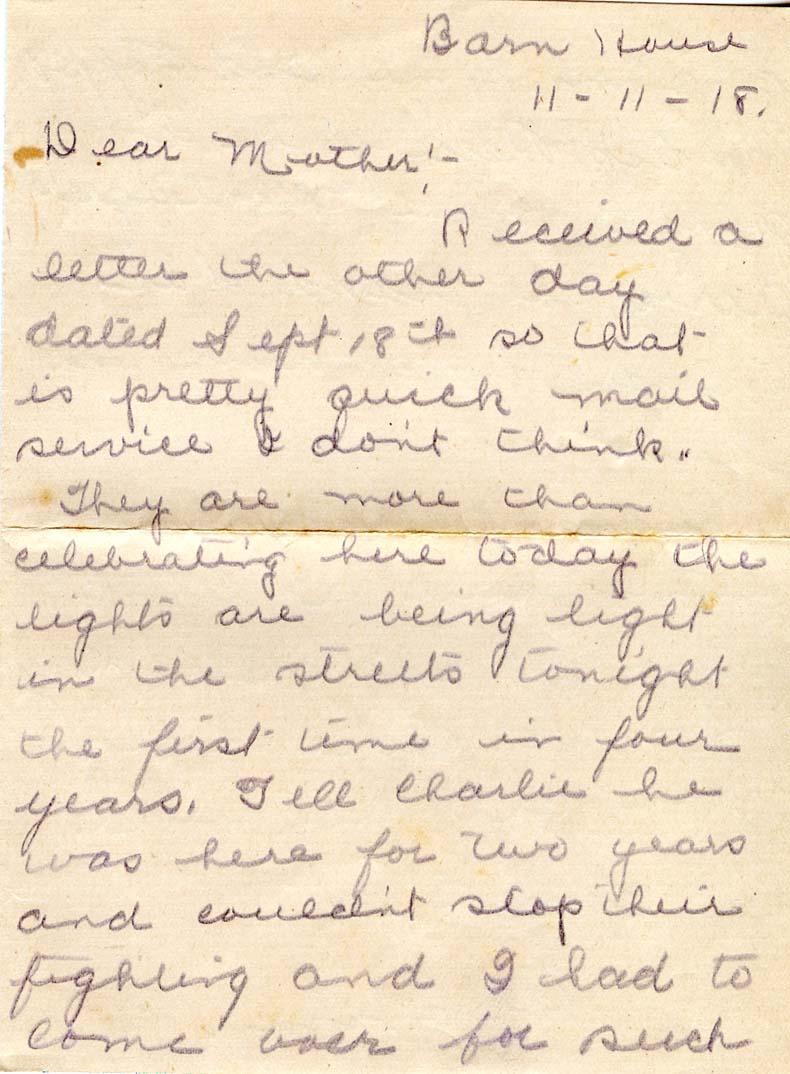 Barn House
11-11-18.
Dear Mother!-
Received a
letter the other day
dated Sept, 18th so that
is pretty quick mail
service I don't think.
They are more than
celebrating here today the
lights are being light
in the streets tonight
the first time in four
years. Tell Charlie he
was here for two years
and couldn't stop their
fighting and I had to
come over for such